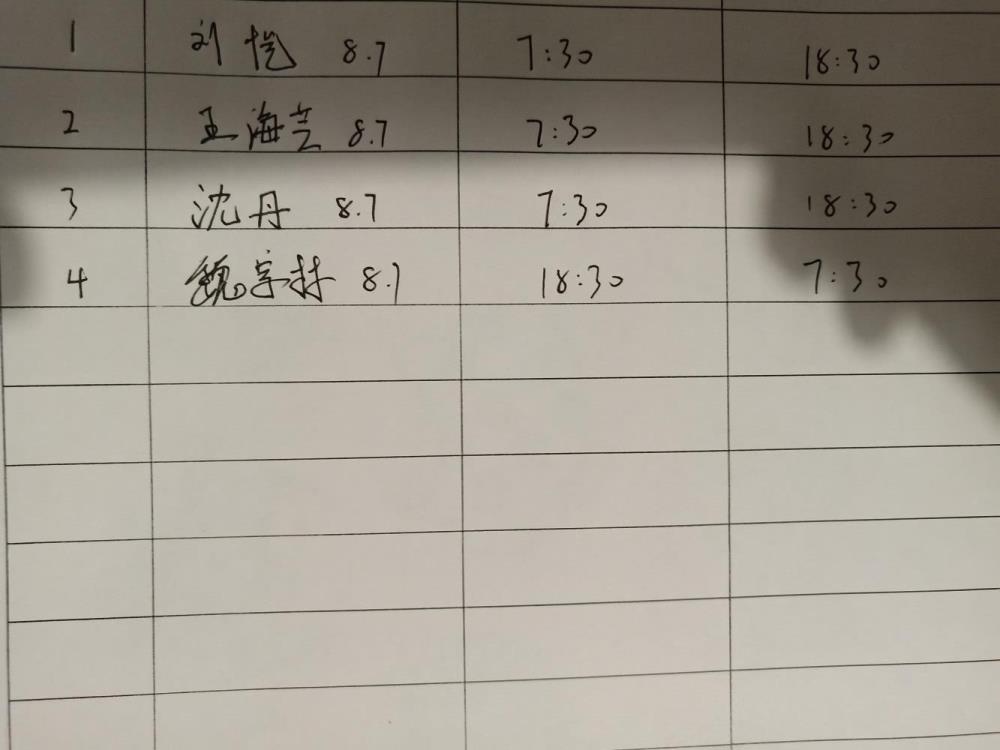 1 刘恺 8.7 7:30 18:30
2 王海芸 8.7 7:30 18:30
3 沈丹 8.7 7:30 18:30
4 魏宗林 8.7 18:30 7:30